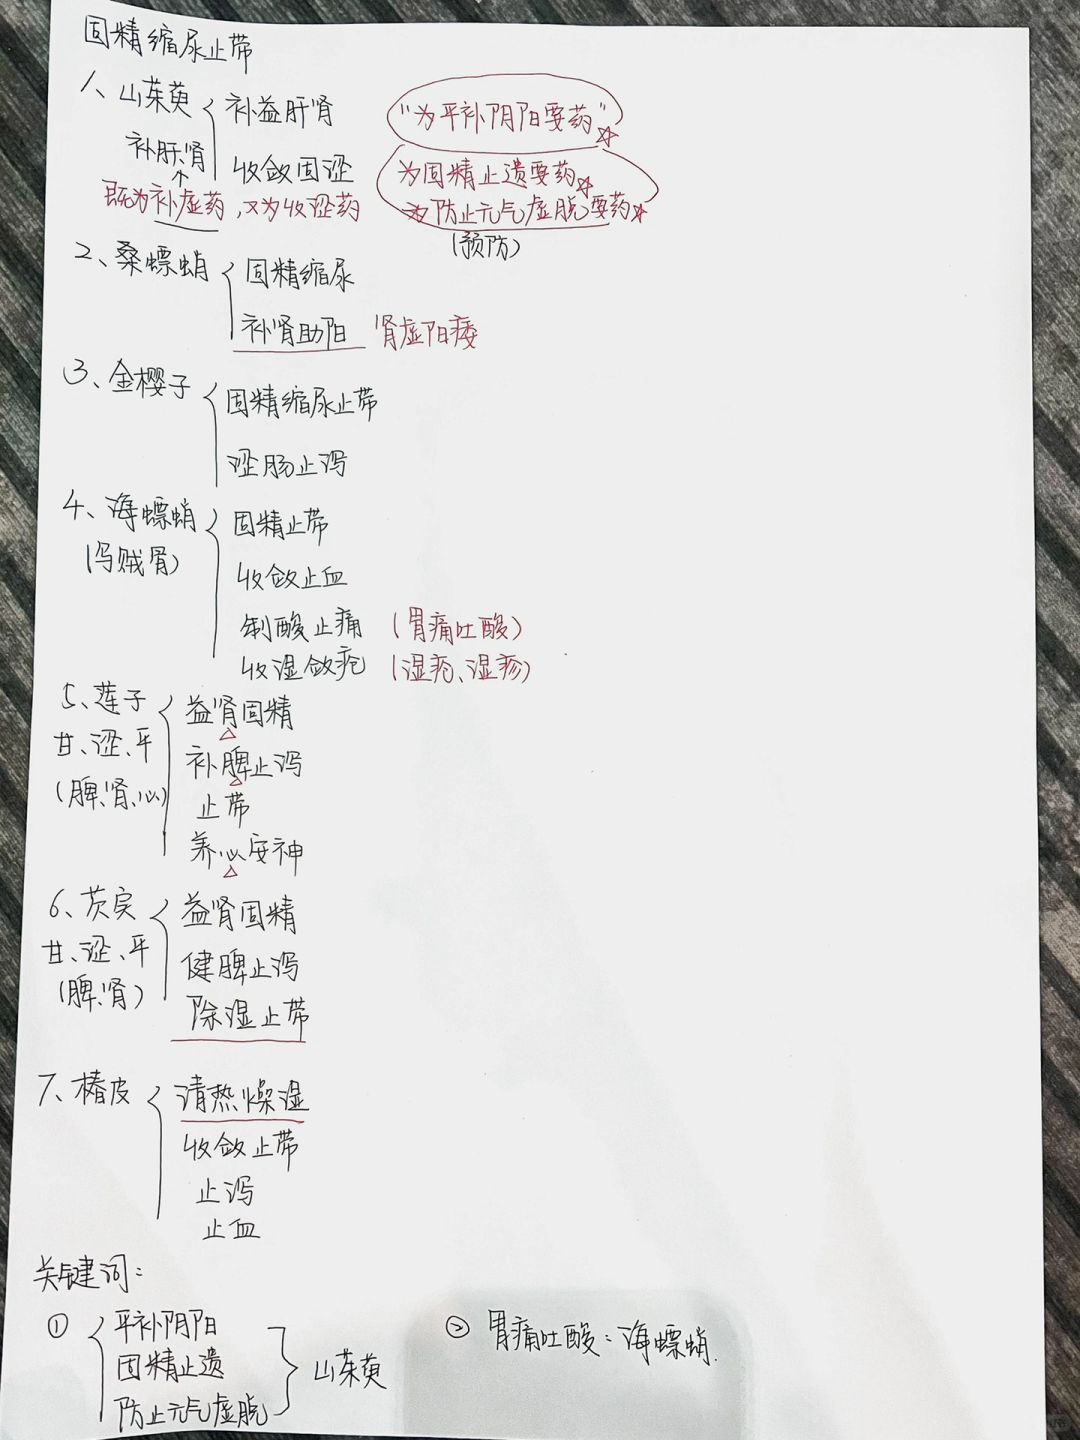 固精缩尿止带
1、山茱萸 补益肝肾 "为平补阴阳要药"☆
补肝、肾 收敛固涩 为固精止遗要药☆
既为补虚药,又为收涩药 为防止元气虚脱要药☆
(预防)
2、桑螵蛸 固精缩尿
补肾助阳 肾虚阳痿
3、金樱子 固精缩尿止带
涩肠止泻
4、海螵蛸 固精止带
(乌贼骨) 收敛止血
制酸止痛 (胃痛吐酸)
收湿敛疮 (湿疮、湿疹)
5、莲子 益肾固精
甘、涩、平 补脾止泻
(脾、肾、心) 止带
养心安神
6、芡实 益肾固精
甘、涩、平 健脾止泻
(脾、肾) 除湿止带
7、椿皮 清热燥湿
收敛止带
止泻
止血
关键词:
① 平补阴阳 ② 胃痛吐酸:海螵蛸.
固精止遗 山茱萸
防止元气虚脱